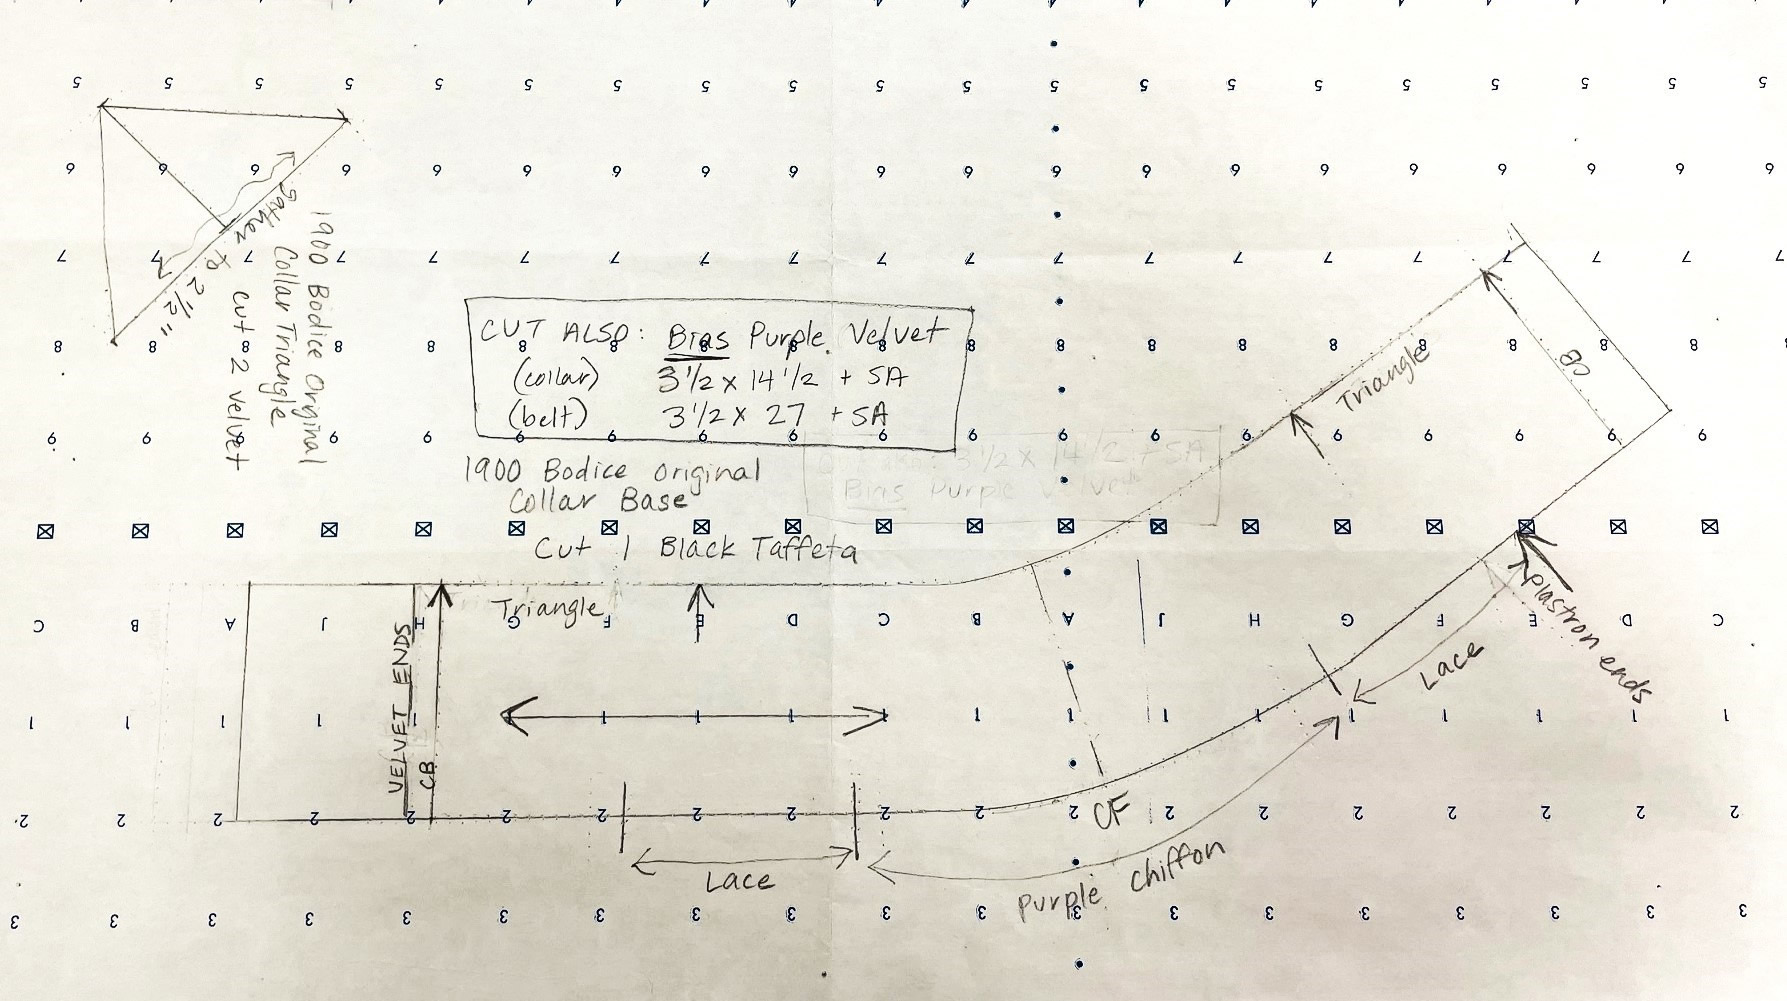 1900 Bodice Original
Collar Triangle
cut 2 velvet
gather to 2 1/2"
CUT ALSO: Bias Purple Velvet
(collar) 3 1/2 x 14 1/2 + SA
(belt) 3 1/2 x 27 + SA
3 1/2 x 14 1/2 + SA
Bias Purple Velvet
1900 Bodice original
Collar Base
Cut 1 Black Taffeta
Triangle
Triangle
CB
VELVET ENDS
CB
Plastron ends
Lace
CF
Lace
Purple chiffon
5 5 5 5 5 5 5 5 5 5 5 5 5 5 5 5 5 5 5 5
6 6 6 6 6 6 6 6 6 6 6 6 6 6 6 6 6 6 6 6
7 7 7 7 7 7 7 7 7 7 7 7 7 7 7 7 7 7 7 7
8 8 8 8 8 8 8 8 8 8 8 8 8 8 8 8 8 8 8
9 9 9 9 9 9 9 9 9 9 9 9 9 9 9 9 9 9 9
C B A J H G F E D C B A J H G F E D C
1 1 1 1 1 1 1 1 1 1 1 1 1 1 1 1 1 1 1
2 2 2 2 2 2 2 2 2 2 2 2 2 2 2 2 2 2 2
3 3 3 3 3 3 3 3 3 3 3 3 3 3 3 3 3 3 3